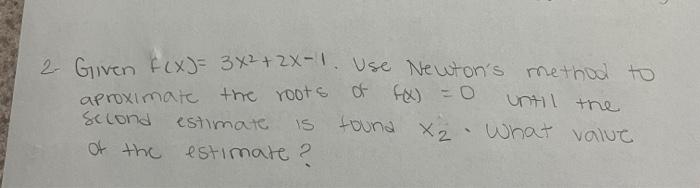 2- Given f(x)= 3x²+2x-1. Use Newton's method to
aproximate the roots of f(x) = 0 until the
second estimate is found x₂. What value
of the estimate?